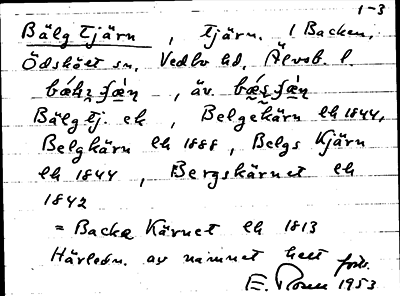 1-3
Bälg Tjärn, tjärn. 1 Backen,
Ödskölt sn. Vedbo hd. Älvsb. l.
, äv.
Bälgtj. ek, Belgekärn lk 1844,
Belgkärn lk 1888, Belgs Kjärn
lk 1844, Bergskärnet lk
1842
= Backa Kärnet lk 1813
Härledn. av namnet helt
E. Rosen 1953